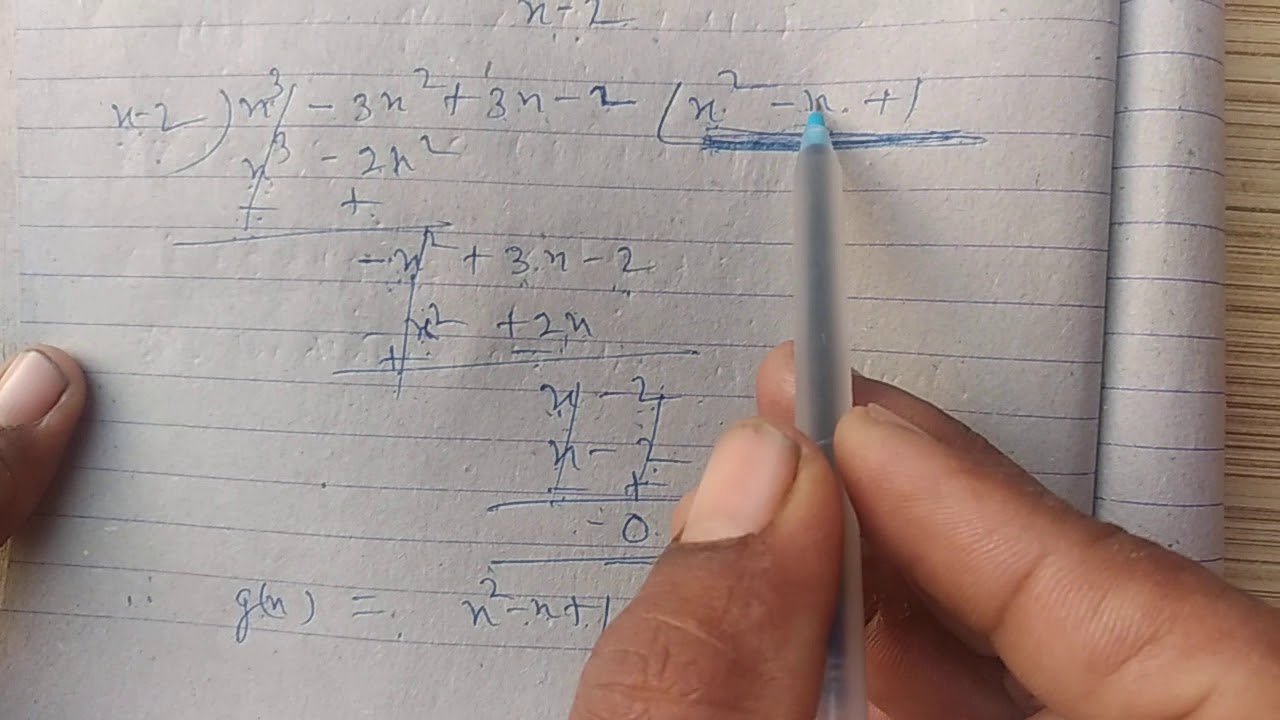 x-2
x-2 ) x³ - 3x² + 3x - 2 ( x² - x + 1
x³ - 2x²
- +
-x² + 3x - 2
- x² + 2x
+ -
x - 2
x - 2
- +
- 0
∴ g(x) = x² - x + 1